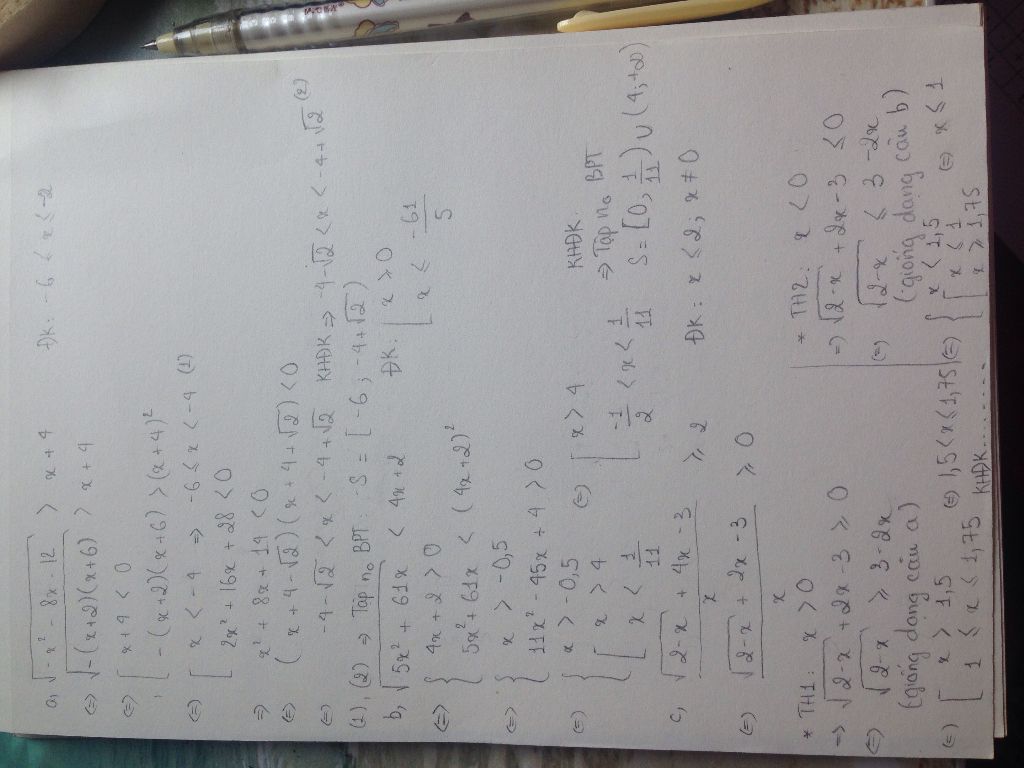 a, √(-x² - 8x - 12) > x + 4   ĐK: -6 ≤ x ≤ -2
(=) √(-(x+2)(x+6)) > x + 4
(=) [ x + 4 < 0
-(x+2)(x+6) > (x+4)²
(=) [ x < -4 => -6 ≤ x < -4 (1)
2x² + 16x + 28 < 0
=> x² + 8x + 14 < 0
(=) (x + 4 - √2)(x + 4 + √2) < 0
(=) -4 - √2 < x < -4 + √2 KHĐK => -4 - √2 < x < -4 + √2 (2)
(1), (2) => Tập n₀ BPT: S = [-6; -4 + √2)
b, √(5x² + 61x) < 4x + 2   ĐK: [ x ≥ 0
x ≤ -61/5
(=) { 4x + 2 > 0
5x² + 61x < (4x + 2)²
(=) { x > -0,5
11x² - 45x + 4 > 0
(=) { x > -0,5
[ x > 4
x < 1/11
(=) [ x > 4
-1/2 < x < 1/11
KHĐK.
=> Tập n₀ BPT
S = [0, 1/11) ∪ (4; +∞)
c, (√(2-x) + 4x - 3)/x ≥ 2   ĐK: x ≤ 2; x ≠ 0
(=) (√(2-x) + 2x - 3)/x ≥ 0
* TH1: x > 0
=> √(2-x) + 2x - 3 ≥ 0
(=) √(2-x) ≥ 3 - 2x
(giống dạng câu a)
(=) [ x > 1,5
1 ≤ x ≤ 1,75 (=) 1,5 < x ≤ 1,75
KHĐK.........
* TH2: x < 0
=> √(2-x) + 2x - 3 ≤ 0
(=) √(2-x) ≤ 3 - 2x
(giống dạng câu b)
(=) { x < 1,5
[ x ≤ 1
x ≥ 1,75 (=) x ≤ 1